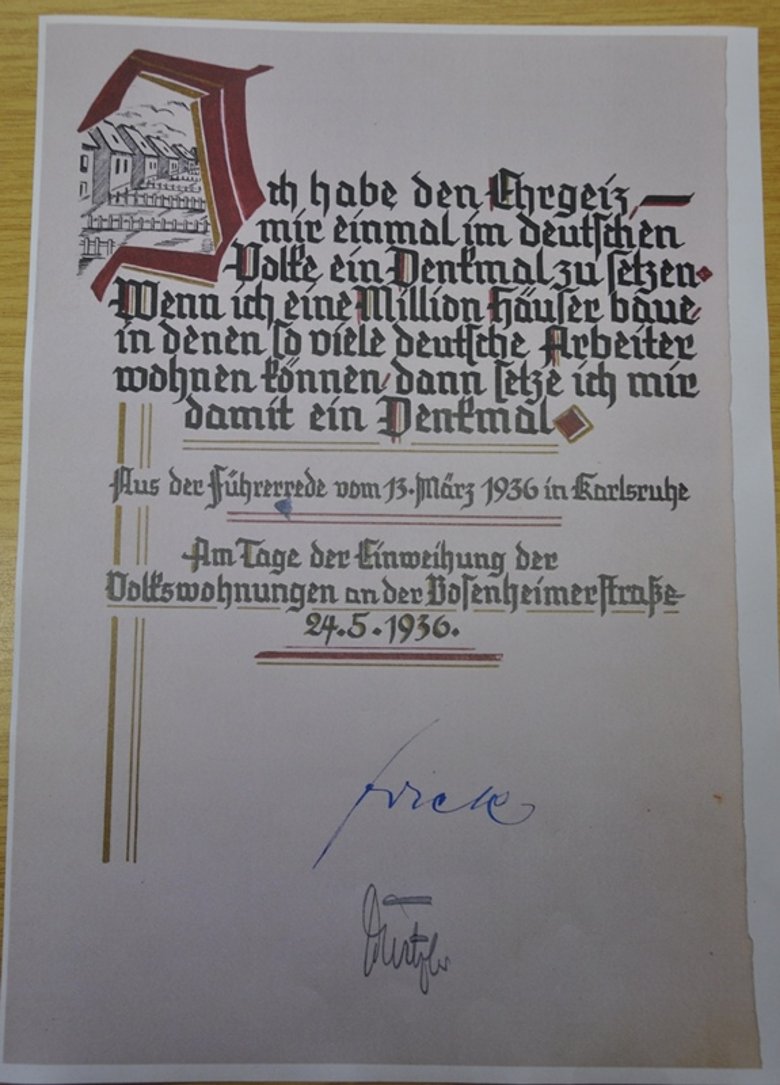 Ich habe den Ehrgeiz,
mir einmal im deutschen
Volke ein Denkmal zu setzen.
Wenn ich eine Million Häuser baue,
in denen so viele deutsche Arbeiter
wohnen können, dann setze ich mir
damit ein Denkmal.
Aus der Führerrede vom 13. März 1936 in Karlsruhe
Am Tage der Einweihung der
Volkswohnungen an der Bosenheimerstraße
24.5.1936.
Frick